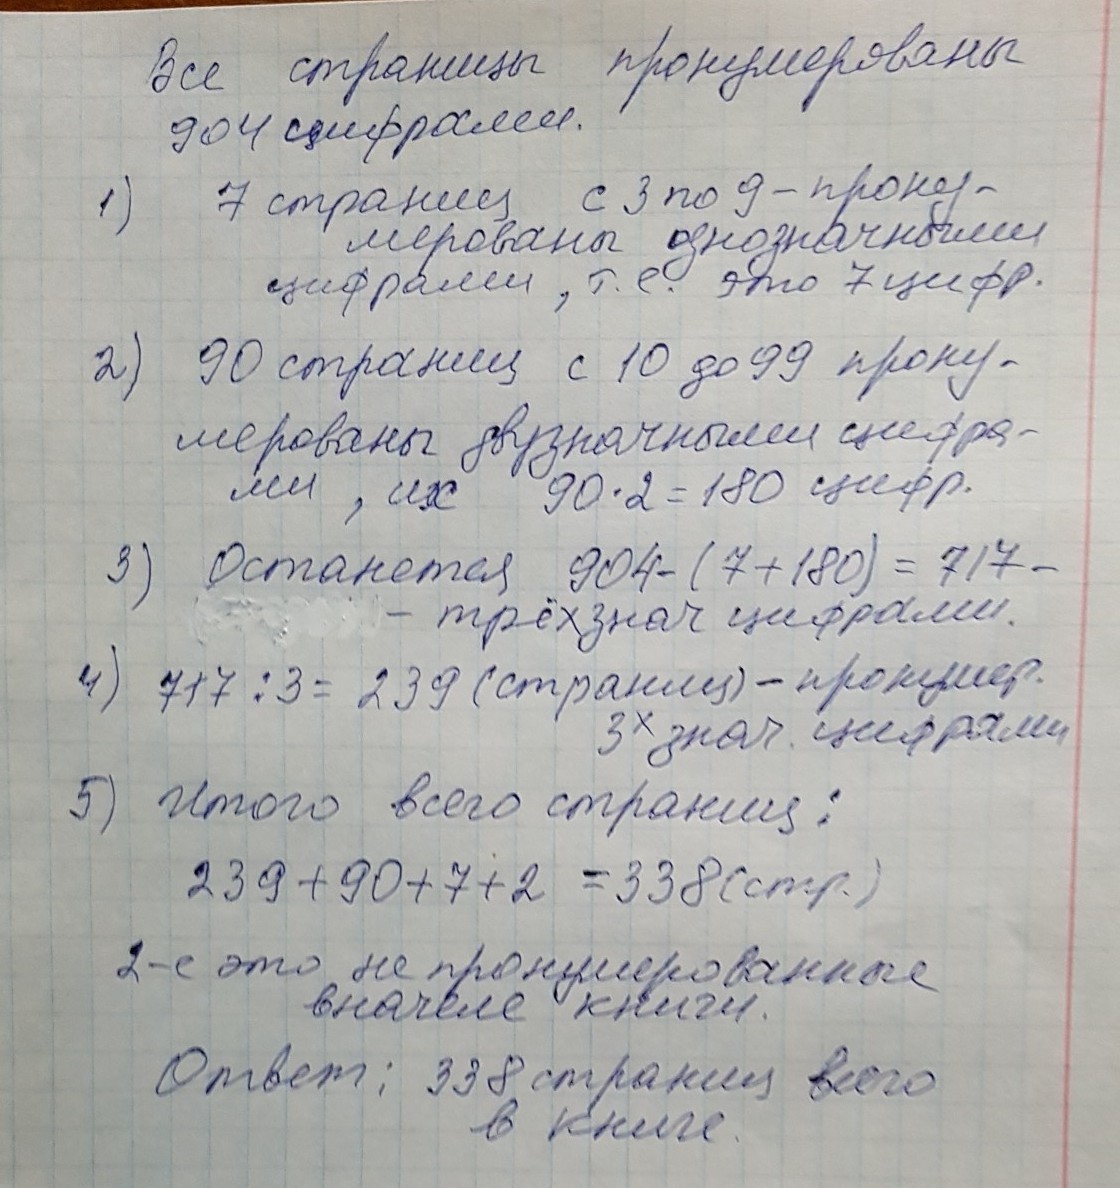 Все страницы пронумерованы
904 цифрами.
1) 7 страниц с 3 по 9 - прону-
мерованы однозначными
цифрами, т.е. это 7 цифр.
2) 90 страниц с 10 до 99 прону-
мерованы двузначными цифра-
ми, их 90·2=180 цифр.
3) Останется 904-(7+180)=717-
- трёхзнач цифрами.
4) 717:3= 239 (страниц) - пронумер.
3х знач. цифрами
5) Итого всего страниц:
239+90+7+2 =338(стр.)
2-е это не пронумерованные
вначеле книги.
Ответ: 338 страниц всего
в книге.